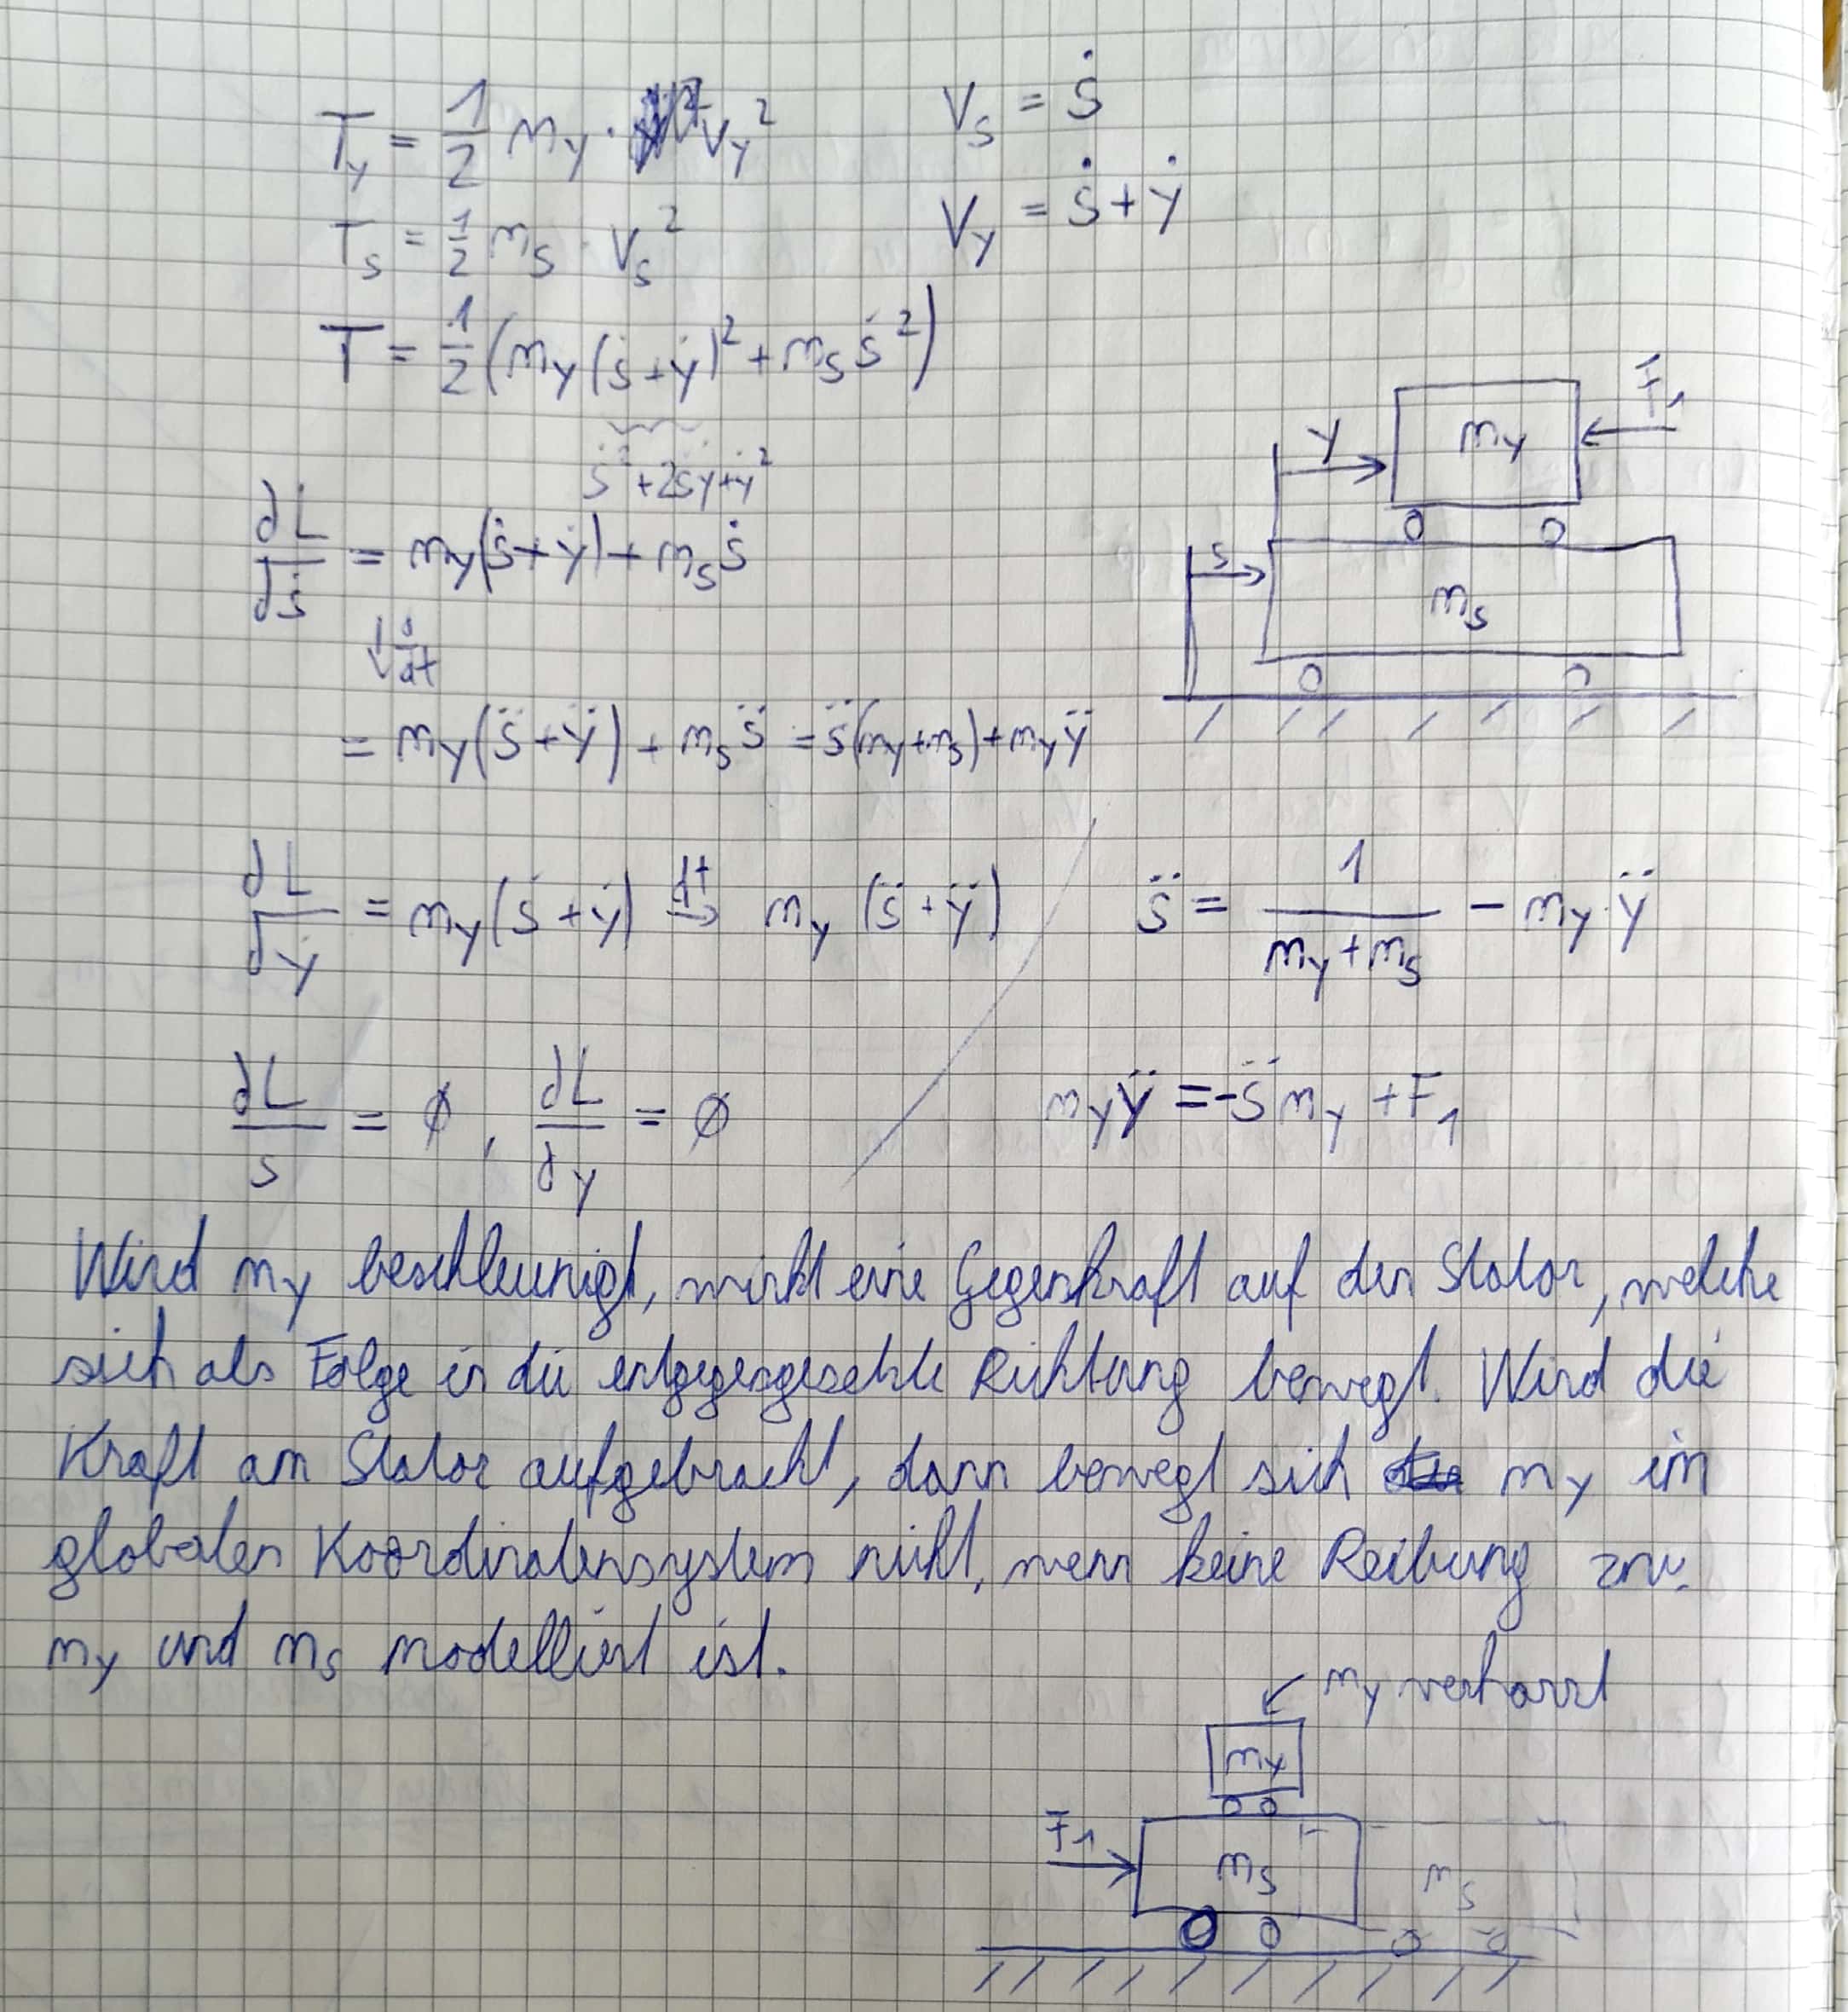 T_y = 1/2 m_y · v_y²
v_s = ṡ
T_s = 1/2 m_s · v_s²
v_y = ṡ + ẏ
T = 1/2 (m_y (ṡ + ẏ)² + m_s ṡ²)
ṡ² + 2ṡẏ + ẏ²
F_1
y
m_y
s
m_s
∂L/∂ṡ = m_y (ṡ + ẏ) + m_s ṡ
↓ d/dt
= m_y (s̈ + ÿ) + m_s s̈ = s̈(m_y + m_s) + m_y ÿ
∂L/∂ẏ = m_y (ṡ + ẏ) dt→ m_y (s̈ + ÿ)
s̈ = 1/(m_y + m_s) − m_y · ÿ
∂L/s = ∅, ∂L/∂y = ∅
m_y ÿ = −s̈ m_y + F_1
Wird m_y beschleunigt, wirkt eine Gegenkraft auf den Stator, welche
sich als Folge in die entgegengesetzte Richtung bewegt. Wird die
Kraft am Stator aufgebracht, dann bewegt sich m_y im
globalen Koordinatensystem nicht, wenn keine Reibung zw.
m_y und m_s modelliert ist.
m_y verharrt
m_y
F_1
m_s
m_s